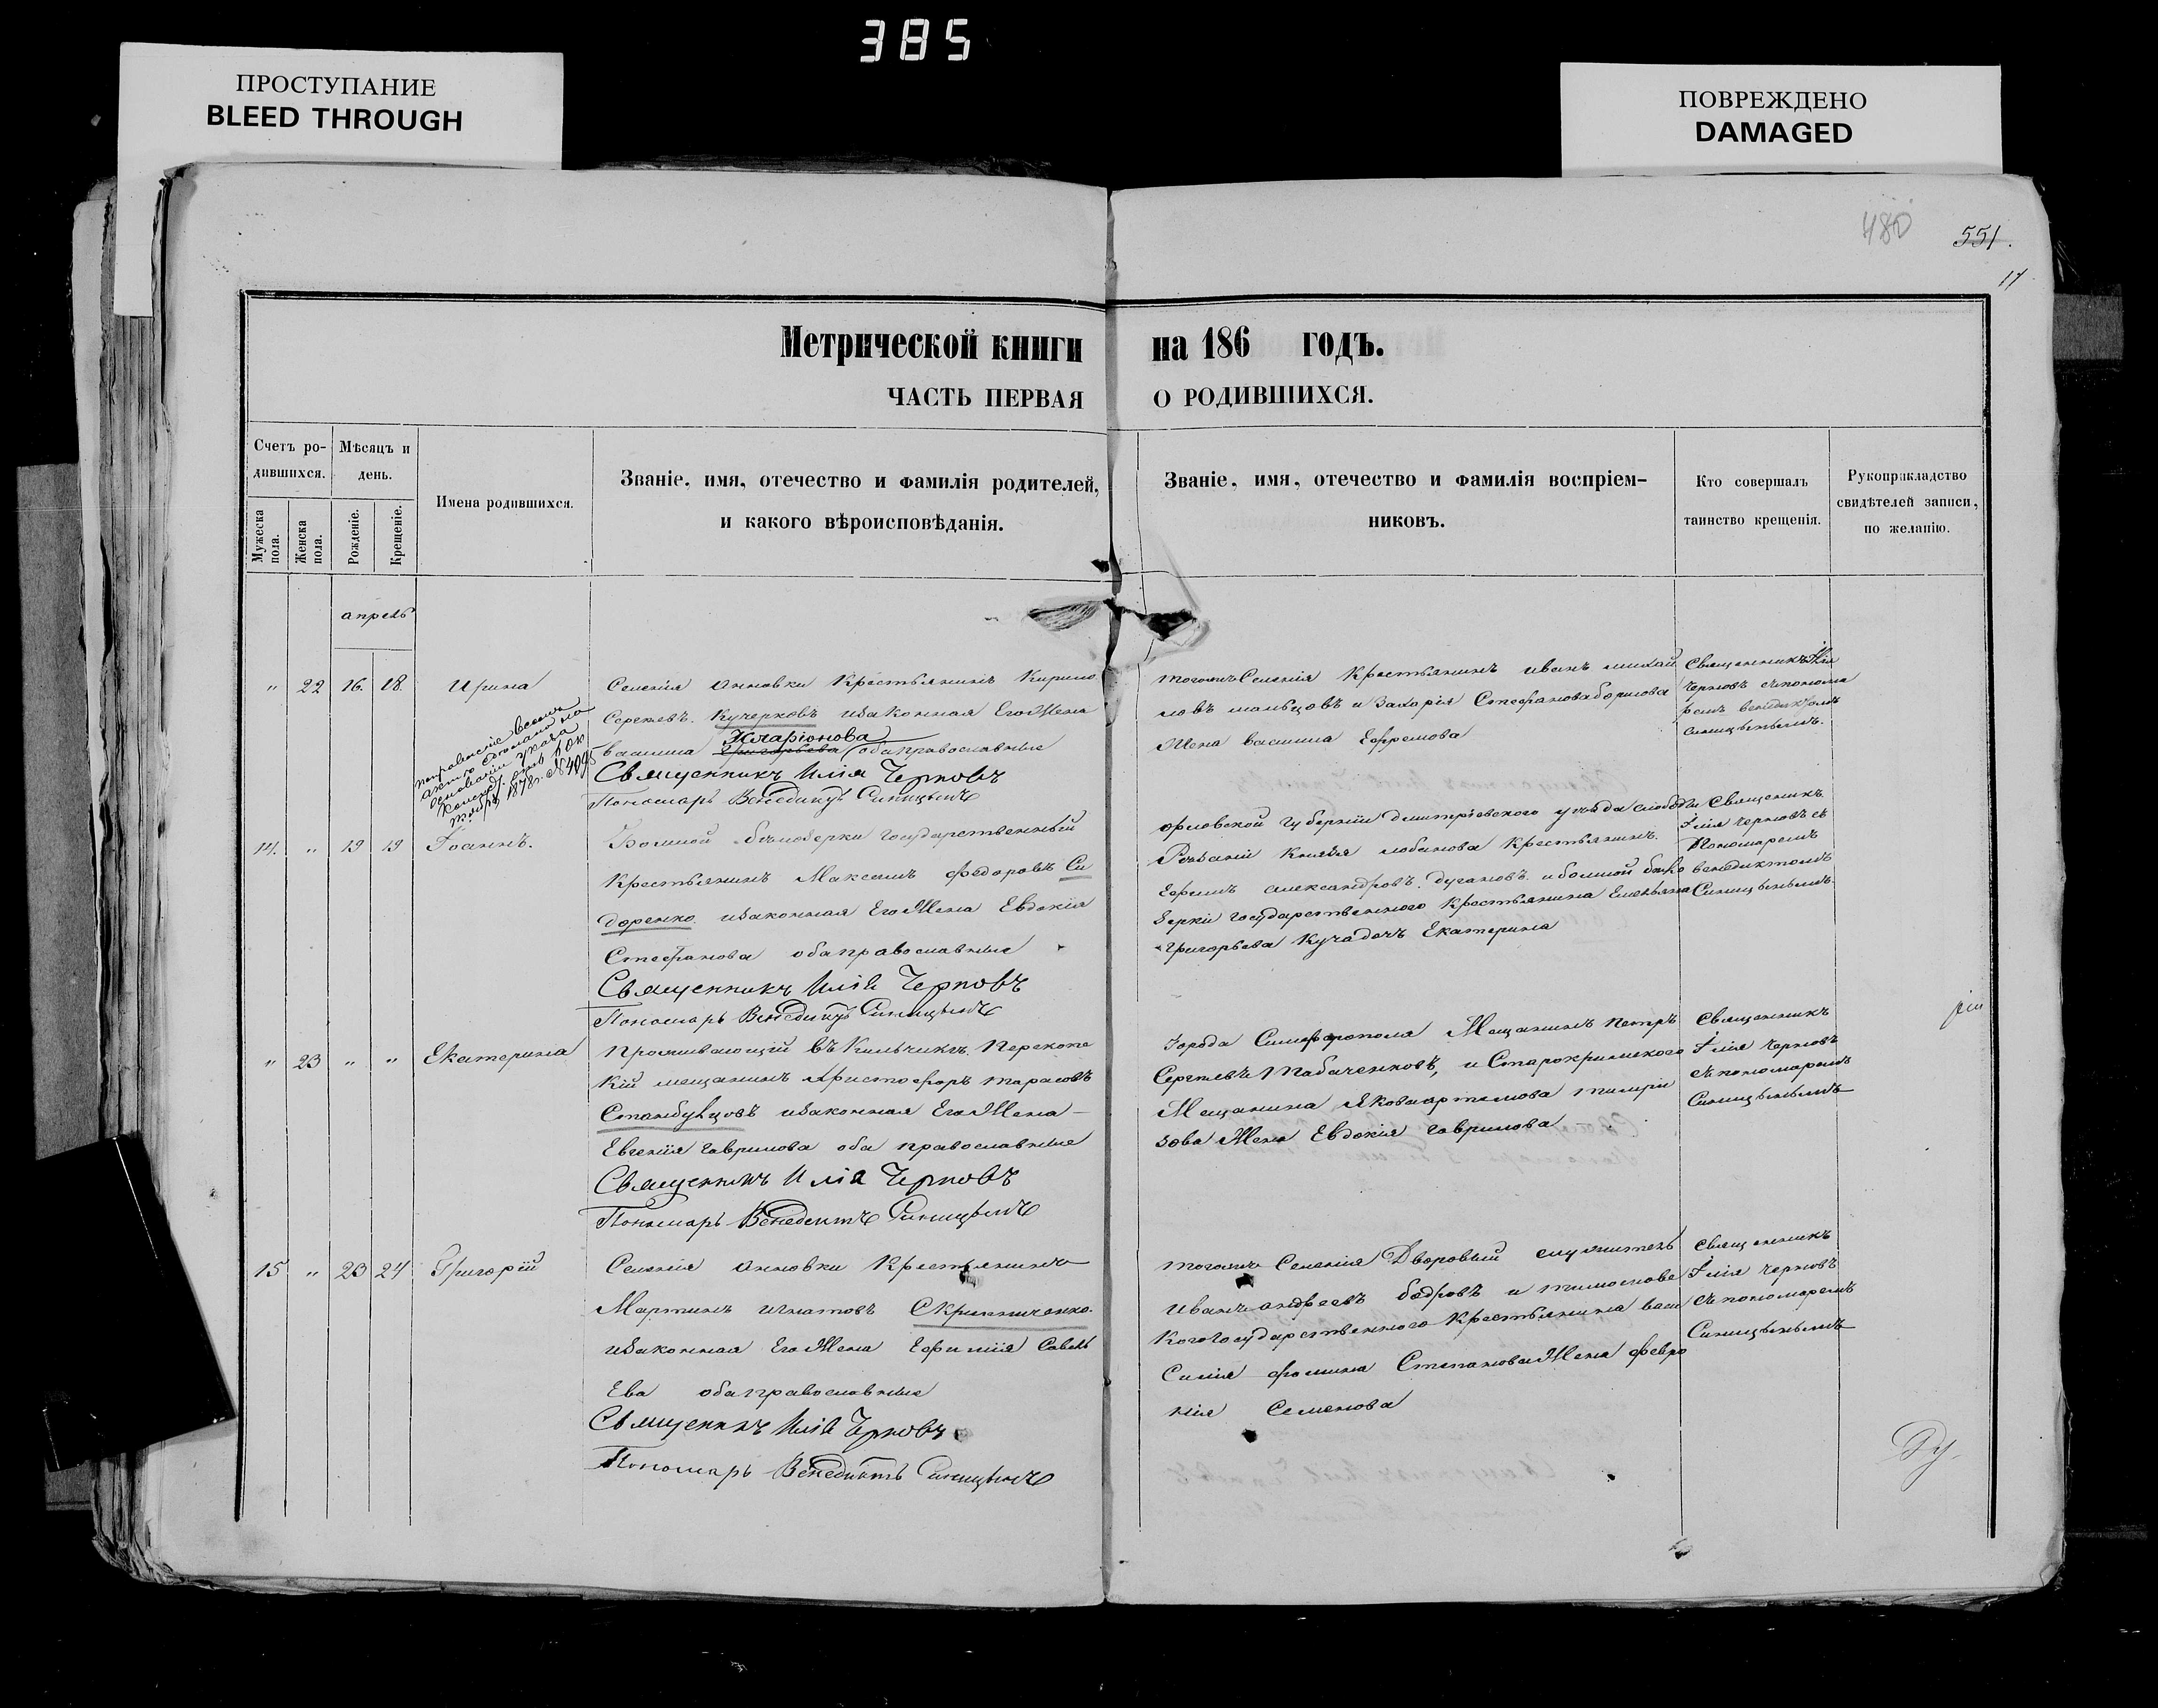 385
ПРОСТУПАНИЕ
BLEED THROUGH
ПОВРЕЖДЕНО
DAMAGED
480
551.
11
Метрической книги на 186 годъ.
ЧАСТЬ ПЕРВАЯ О РОДИВШИХСЯ.
Счетъ ро-
дившихся.
Мужеска
пола.
Женска
пола.
Мѣсяцъ и
день.
Рожденіе.
Крещеніе.
Имена родившихся.
Званіе, имя, отечество и фамилія родителей,
и какого вѣроисповѣданія.
Званіе, имя, отечество и фамилія воспріем-
никовъ.
Кто совершалъ
таинство крещенія.
Рукоприкладство
свидѣтелей записи,
по желанію.
апрель
" 22 16. 18. Ирина
Селенія Анновки Крестьянинъ Кирило
Сергѣевъ. Кучерковъ изаконная Его Жена
Иларіонова
василиса Григорьева оба православные
Священникъ Илія Черновъ
Пономарь Венедиктъ Синицынъ
тогожъ Селенія Крестьянинъ иванъ михай
ловъ мальцовъ и Захарія Стефанова борисова
Жена василиса Ефремова
Священникъ Илія
Черновъ съ понома
ремъ венедиктомъ
синицынымъ.
1878 г. № 4095
14. " 19 19 Іоаннъ.
Болшой бѣлозерки государственный
Крестьянинъ Максимъ федоровъ Си
доренко изаконная Его Жена Евдокія
Стефанова оба православные
Священникъ Илія Черновъ
Пономарь Венедиктъ Синицынъ
орловской губерніи дмитріевского уѣзда слободы
Крестьянинъ.
Ефимъ александровъ. дугановъ. и болшой бѣло
зерки государственного Крестьянина Емельяна
григорьева Куча дочь Екатерина
Священникъ
Ілія черновъ съ
Пономаремъ
венедиктомъ
Синицынымъ.
" 23 " " Екатерина
Проживающій въ Кильчикъ. Перекопс
кій мещанинъ Христофоръ тарасовъ
Стамбулцовъ изаконная Его Жена
Евгенія гаврилова оба православные
Священникъ Илія Черновъ
Пономарь Венедиктъ Синицынъ
Города Симферополя Мещанинъ Петръ
Сергѣевъ Табаченковъ, и Старокримского
Мещанина Якова артемова
зова Жена Евдокія гаврилова
Священникъ
Ілія черновъ
съ пономаремъ
Синицынымъ
15 " 23 24 Григорій
Селенія Анновки Крестьянинъ
Мартинъ игнатовъ Скрипниченко.
изаконная Его Жена Ефимія Савель
Ева оба православные
Священникъ Илія Черновъ
Пономарь Венедиктъ Синицынъ
тогожъ Селенія Дворовый служитель
Иванъ андреевъ бодровъ и тимошовс
кого государственного Крестьянина васи
Силія фомина Степанова Жена февро
нія Семенова
священникъ
Ілія черновъ
съ пономаремъ
Синицынымъ